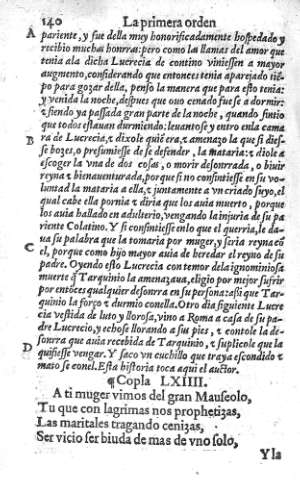 140 La primera orden
A pariente, y fue della muy honorificadamente hospedado y
recibio muchas honrras: pero como las llamas del amor que
tenia ala dicha Lucrecia de contino viniessen a mayor
augmento, considerando que entonces tenia aparejado tiẽ-
po para gozar della, penso la manera que para esto tenia:
y venida la noche, despues que ouo cenado fuese a dormir:
& siendo ya passada gran parte de la noche, quando sintio
que todos estauan durmiendo: leuantose y entro enla cama
B ra de Lucrecia, & dixole quiẽ era, & amenazo la que si dies-
se bozes, o presumiesse de se defender, la mataria: & diole a
escoger la vna de dos cosas, o morir desonrrada, o biuir
reyna & bienauenturada, porque si no consintiesse en su vo-
luntad la mataria a ella, & juntamente a vn criado suyo, el
qual cabe ella pornia & diria que los auia muerto, porque
los auia hallado en adulterio, vengando la injuria de su pa
riente Colatino. Y si consintiesse enlo que el querria, le da-
ua su palabra que la tomaria por muger, y seria reyna cõ
C el, porque como hijo mayor auia de heredar el reyno de su
padre. Oyendo esto Lucrecia con temor dela ignominiosa
muerte q̃ Tarquinio la amenazaua, eligio por mejor sufrir
por entõces qualquier desonrra en su persona: assi que Tar-
quinio la forço & durmio conella. Otro dia siguiente Lucre
cia vestida de luto y llorosa, vino a Roma a casa de su pa-
dre Lucrecio, y echose llorando a sus pies, & contole la de-
sonrra que auia recebida de Tarquinio, & suplicole que la
D quisiesse vengar. Y saco vn cuchillo que traya escondido &
matose conel. Esta historia toca aqui el auctor.
¶ Copla LXIIII.
A ti muger vimos del gran Mauseolo,
Tu que con lagrimas nos prophetizas,
Las maritales tragando cenizas,
Ser vicio ser biuda de mas de vno solo,
Y la